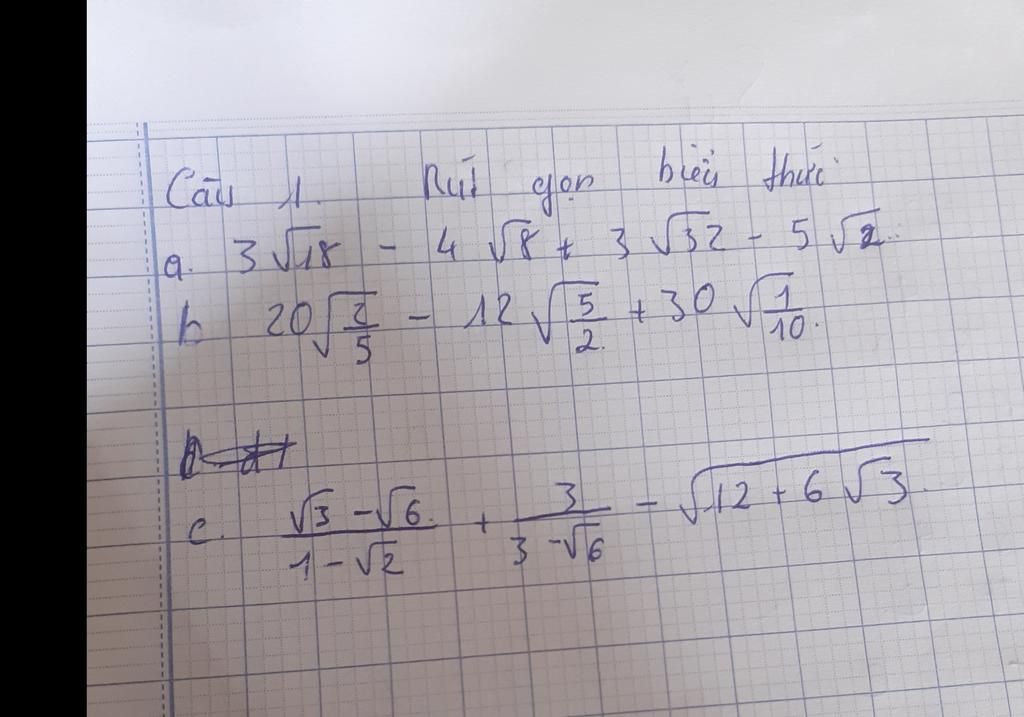 Câu 1. Rút gọn biểu thức
a. 3√18 - 4√8 + 3√32 - 5√2.
b 20√(2/5) - 12√(5/2) + 30√(1/10).
c. (√3 - √6)/(1 - √2) + 3/(3 - √6) - √(12 + 6√3).